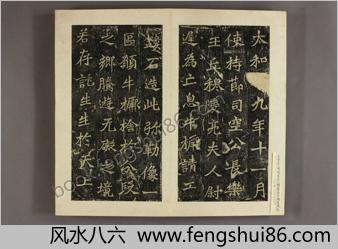 太和十九年十一月
使持節司空公長樂
王丘穆陵亮夫人尉
遲為亡息牛橛請工
鏤石造此彌勒像一
區願牛橛捨於分段
之鄉騰遊无礙之境
若存託生生於天上
风水八六 www.fengshui86.com